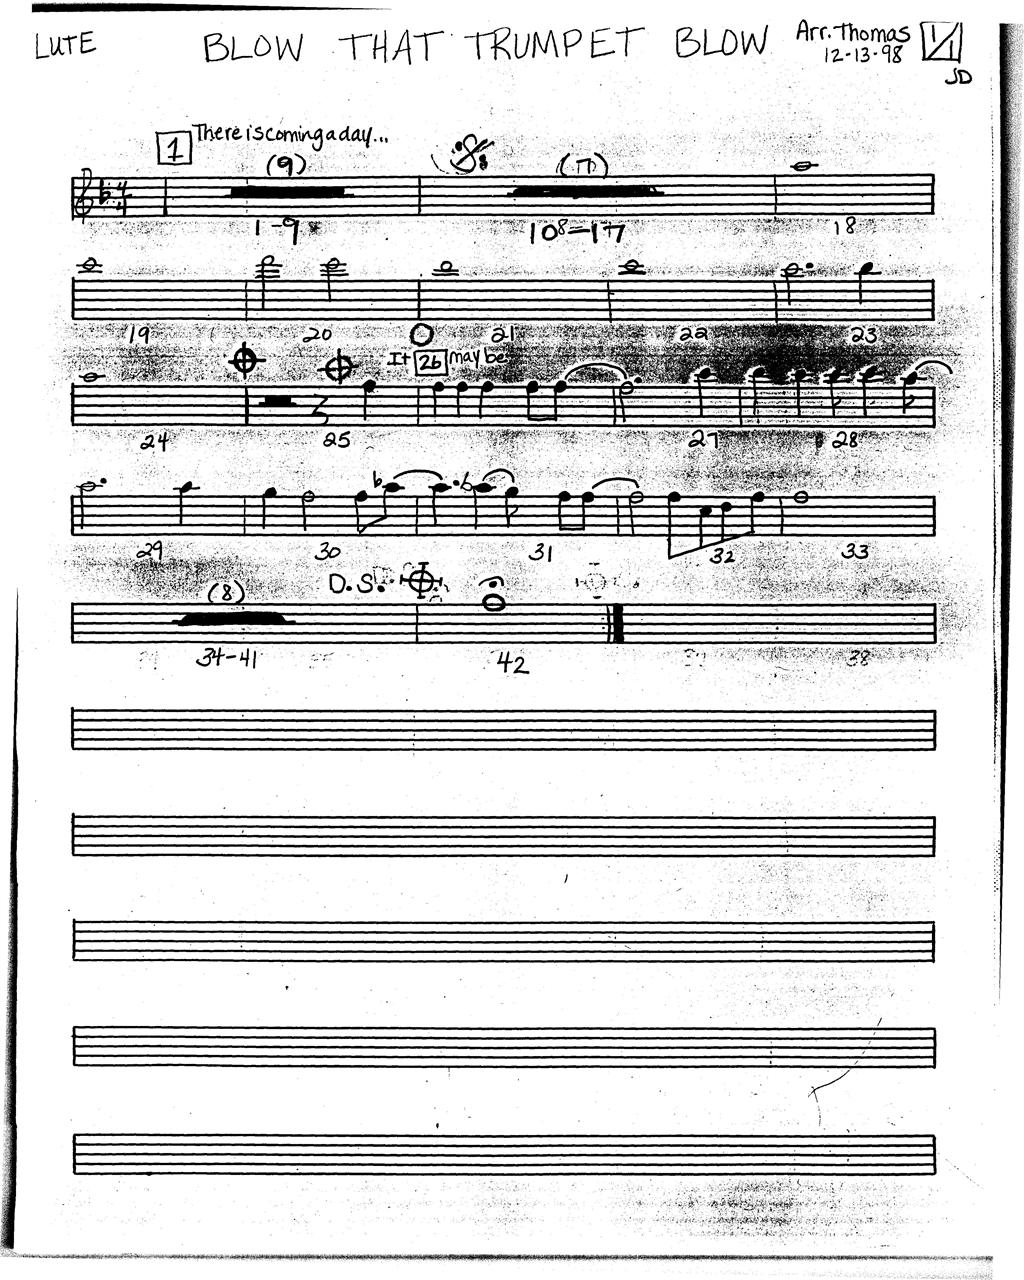 LUTE BLOW THAT TRUMPET BLOW Arr. Thomas 1/1
12-13-98
JD
1 There is coming a day...
(9)
1-9 18
19 20 21 22 23
It 26 may be
24 25 27 28
29 30 31 32 33
(8) D.S.
34-41 42 38